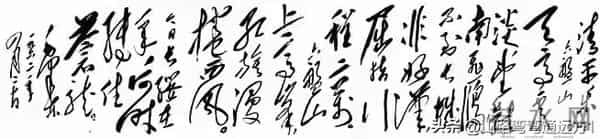 清平乐
六盘山
天高云
淡望断
南飞雁
不到长城
非好汉
屈指行
程二万
六盘山
上高峰
红旗漫
捲西风
今日长缨在
手何时
缚住
苍龙
毛泽东